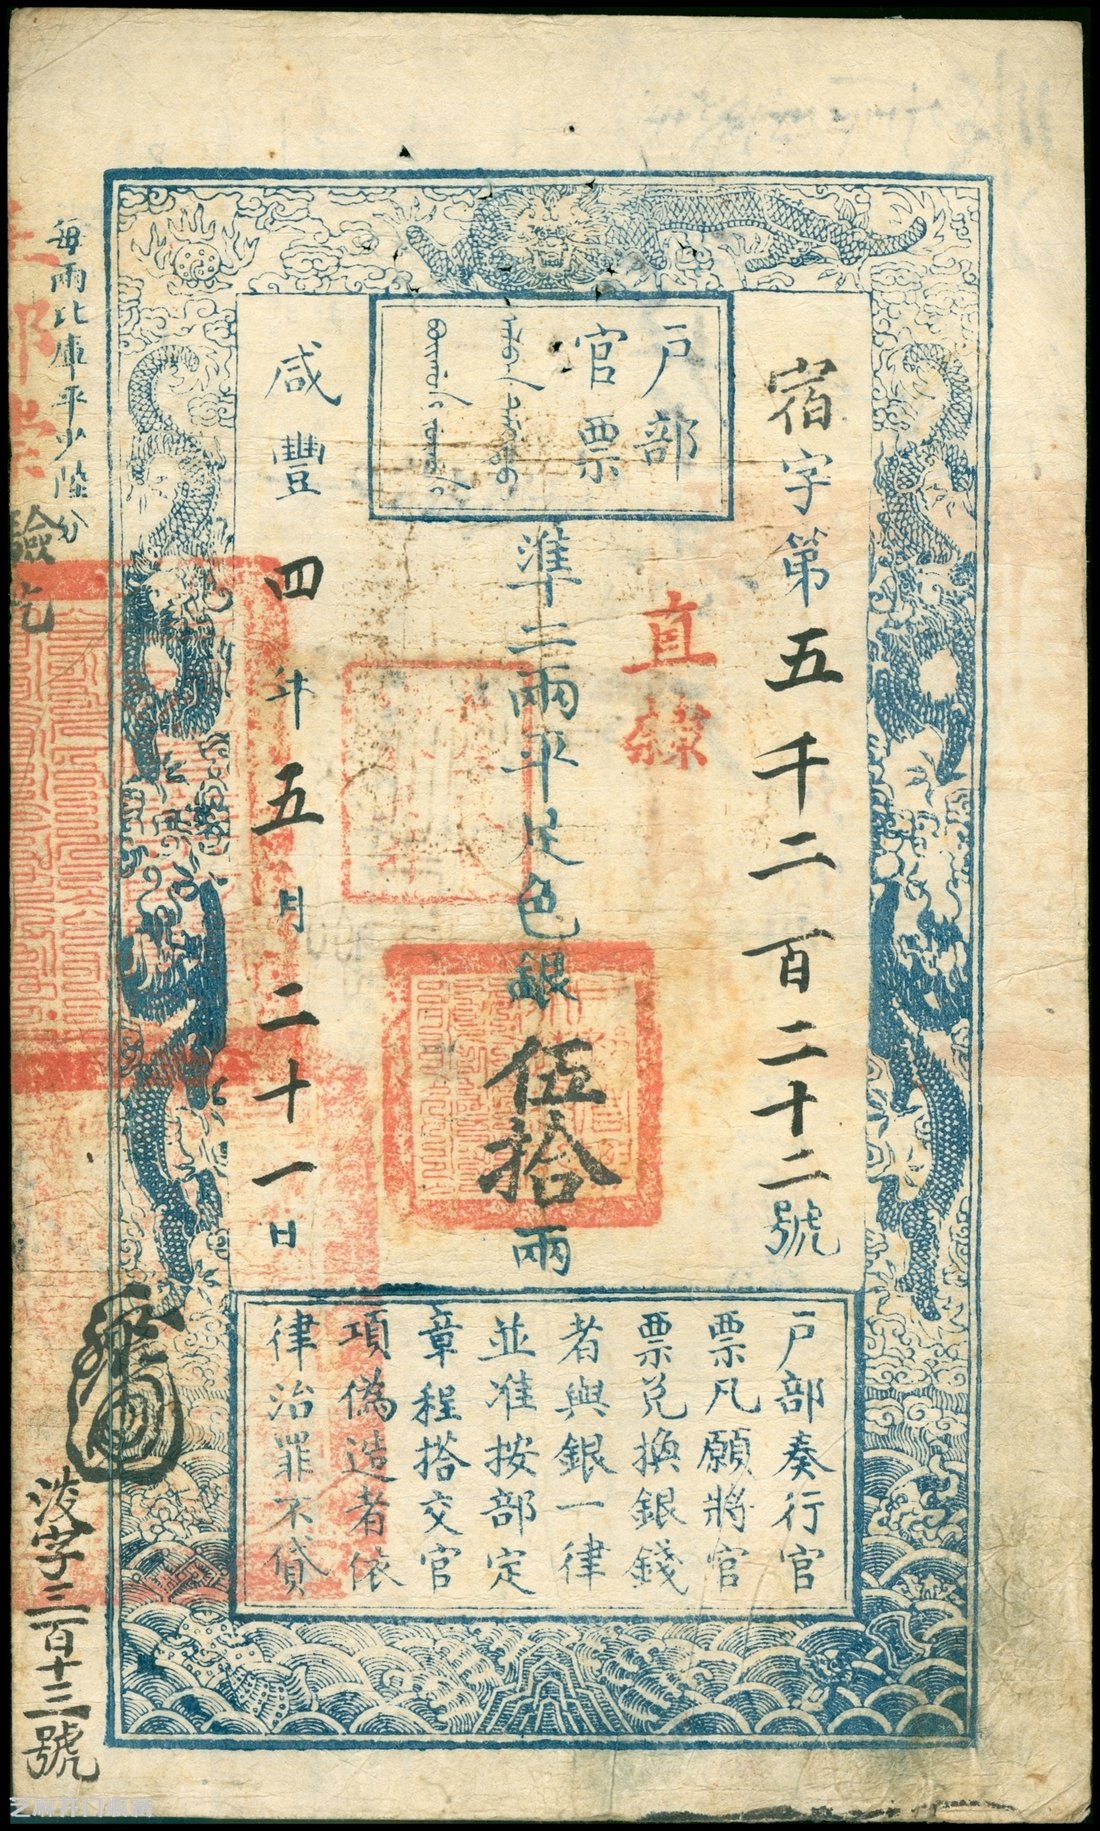 宿字第五千二百二十二號
戶部
官票
直隸
準二兩平足色銀伍拾兩
咸豐四年五月二十一日
戶部奏行官
票凡願將官
票兌換銀錢
者與銀一律
並准按部定
章程搭交官
項偽造者依
律治罪不貸
每兩比庫平少陸分
驗訖
三百十三號